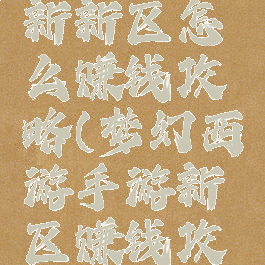 新新区怎
么赚钱攻
略(梦幻西
游手游新
区赚钱攻